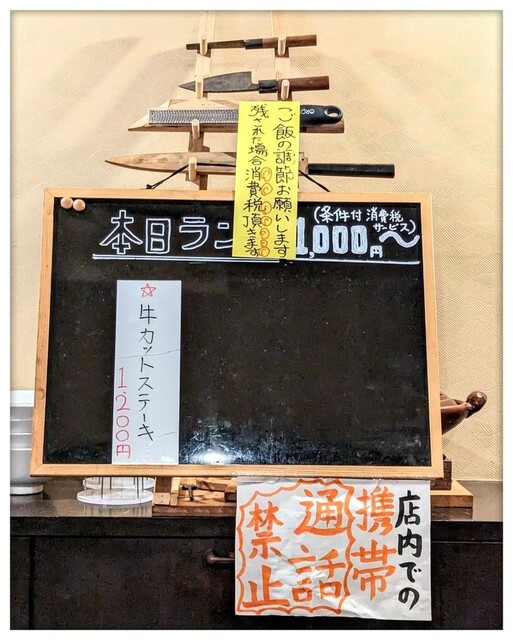 ご飯の調節お願いします
残された場合消費税頂きます
本日ラン
1,000円〜
(条件付 消費税
サービス)
☆牛カットステーキ
1,200円
店内での
携帯
通話
禁止